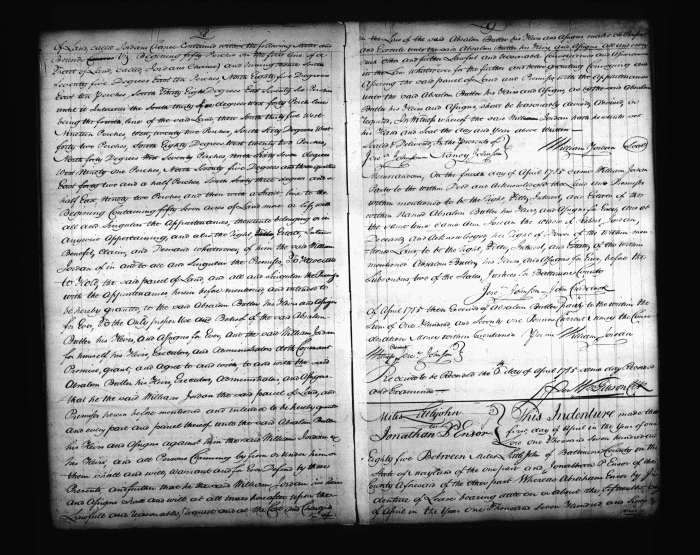 of Land, called Jordans Chance Contained within the following Metes and
Bounds Beginning fifty Perches on the first line of a
Tract of Land, called Jordans and running thence South
Seventy five Degrees East ten Perches North Eighty five Degrees
East ten Perches, South Thirty Eight Degrees East Six Perches
until it Intersects the South thirty five Degrees West Perch line
being the fourth line of the said Land, then South thirty five West
Nineteen Perches, West, twenty two Perches, South Sixty Degrees West
forty two Perches, South Eighty Degrees West twenty two Perches,
North forty Degrees West Seventy Perches North ten Degrees
West Ninety one Perches, North Seventy five Degrees and three quarters
East forty two and a half Perches South forty three degrees and a
half East, Ninety two Perches and then with a Strait line to the
Beginning Containing fifty Seven acres of Land more or less with
all and Singular the Appurtenances, thereunto belonging or in
Anywise Appertaining, and also the Right, Estate, Interest
Benefits, Claim, and Demand whatsoever, of him the said William
Jordan of in and to all and Singular the Premises, To Have and
to Hold, the said parcel of Land, and all and Singular the Premises
with the Appurtenances herein before mentioned, and intended to
be hereby granted, to the said Absalom Butler his Heirs and Assigns
for Ever, To the Only proper Use and Behoof of the said Absalom
Butler his Heirs, and Assigns for Ever, And the said William Jordan
for himself his Heirs, Executors, and Administrators doth Covenant
Promise, grant, and Agree to and with, to and with the said
Absalom Butler his Heirs Executors, Administrators, and Assigns
that he the said William Jordan the said parcel of Land, and
Premises herein before mentioned and intended to be hereby granted
and every part and parcel thereof unto the said Absalom Butler
his Heirs and Assigns against him the said William Jordan &
his Heirs, and all Persons Claiming by from or under him or
them shall and will Warrant and for Ever Defend by these
Presents, and further that he the said William Jordan his Heirs
And Assigns shall and will at all times hereafter upon the
Lawfull and reasonable Request and at the Cost and Charges
in the Law of the said Absalom Butler his Heirs and Assigns make do
and Execute unto the said Absalom Butler his Heirs and Assigns All and every
such other and further Lawful and reasonable Conveyances and Assurances
in the Law whatsoever for the further and more Assuring Conveying and
Assuring the said parcel of Land and Premises with the Appurtenances
unto the said Absalom Butler his Heirs and Assigns, as by the said Absalom
Butler his Heirs and Assigns shall be reasonably devised, Advised, or
required, In Witness whereof the said William Jordan hath hereunto set
his Hand and Seal the day and Year above Written
Sealed & Delivered, In the presence of
Jesse Johnson Nancy Johnson William Jordan (Seal)
Memorandum, On the fourth day of April 1785 Came William Jordan
Party to the within Deed and Acknowledged the Land and Premises
within mentioned to be the Right, Title, Interest, and Estate of the
within Named Absalom Butler his Heirs, and Assigns for Ever, And at
the same time Came Ann Jordan the Wife of William Jordan,
Dowers, and Acknowledged her Right of Dower of the within men-
tioned Land, to be the Right, Title, Interest, and Estate, of the within
mentioned Absalom Butler, his Heirs, and Assigns for Ever, before the
Subscribers two of the States, Justices for Baltimore County
Jesse Johnson John
of April 1785 then Received of Absalom Butler party to the within, the
Sum of One Hundred and Seventy one Pounds Current Money the Consi-
deration Money within mentioned, Per me William Jordan
Jesse Johnson
Received to be Recorded the 6 day of April 1785 same day Recorded
and Examined
Miles Littlejohn
to
Jonathan P. Ensor
This Indenture made this
first day of April in the Year of our
Lord One thousand Seven hundred and
Eighty five Between Miles Littlejohn of Baltimore County in the
State of Maryland of the one part and Jonathan P. Ensor of the
County Aforesaid of the other part Whereas Abraham Ensor by In-
denture of Lease bearing date on or about the fifteenth day
of April in the Year One Thousand Seven Hundred and